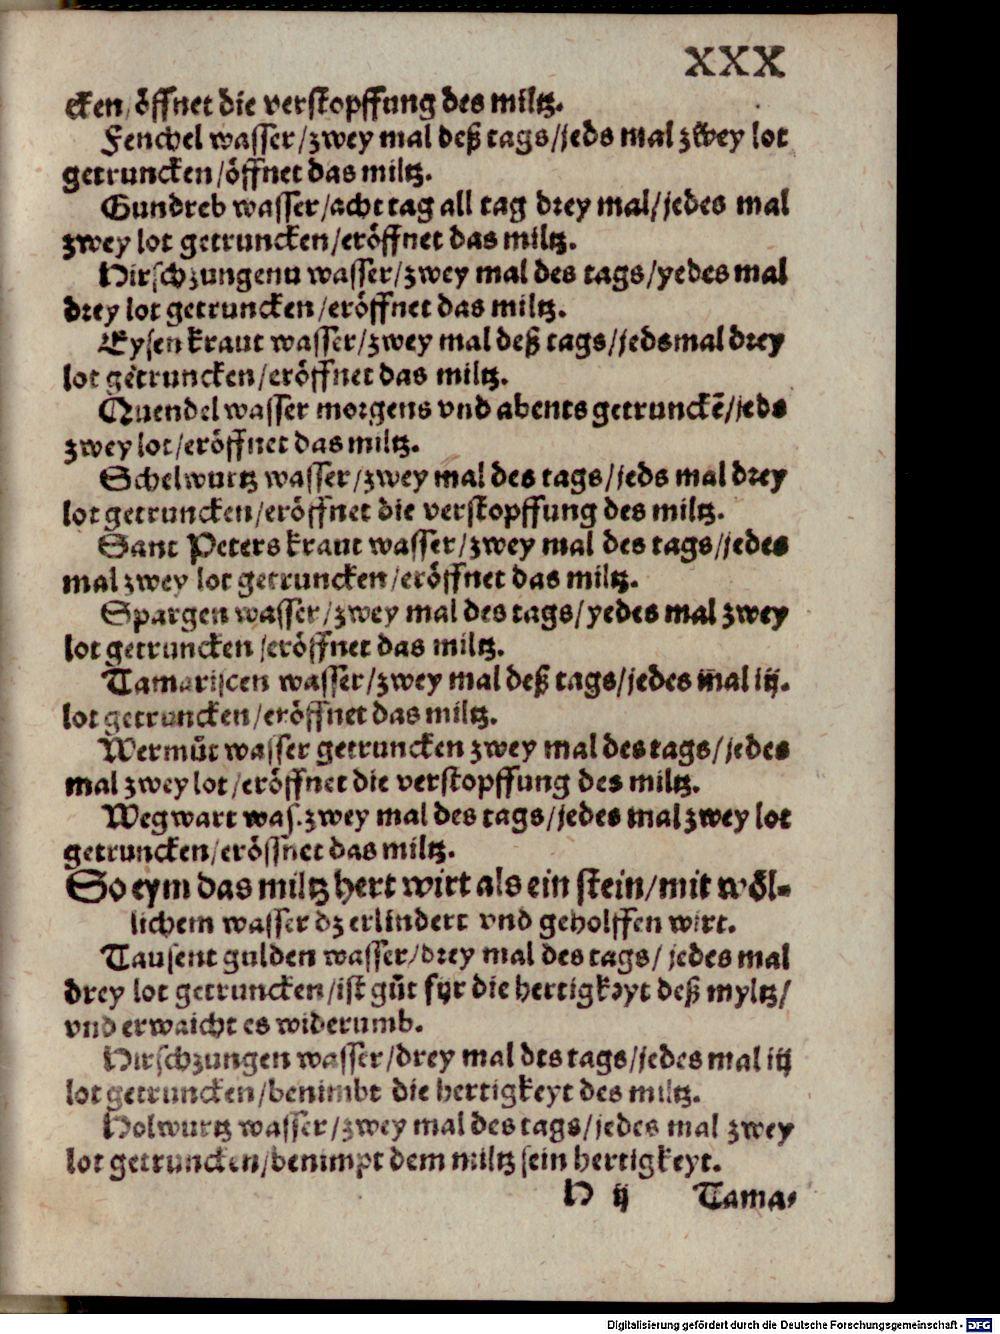 XXX
cken/öffnet die verstopffung des miltz.
Fenchel wasser/zwey mal deß tags/jeds mal zwey lot
getruncken/öffnet das miltz.
Gundreb wasser/acht tag all tag drey mal/jedes mal
zwey lot getruncken/eröffnet das miltz.
Hirschzungenn wasser/zwey mal des tags/yedes mal
drey lot getruncken/eröffnet das miltz.
Eysenkraut wasser/zwey mal deß tags/jedsmal drey
lot getruncken/eröffnet das miltz.
Quendel wasser morgens vnd abents getrunckē/jeds
zwey lot/eröffnet das miltz.
Schelwurtz wasser/zwey mal des tags/jeds mal drey
lot getruncken/eröffnet die verstopffung des miltz.
Sant Peters kraut wasser/zwey mal des tags/jedes
mal zwey lot getruncken/eröffnet das miltz.
Spargen wasser/zwey mal des tags/yedes mal zwey
lot getruncken/eröffnet das miltz.
Tamariscen wasser/zwey mal deß tags/jedes mal iij.
lot getruncken/eröffnet das miltz.
Wermůt wasser getruncken zwey mal des tags/jedes
mal zwey lot/eröffnet die verstopffung des miltz.
Wegwart was. zwey mal des tags/jedes mal zwey lot
getruncken/erössnet das miltz.
So eym das miltz hert wirt als ein stein/mit wöl-
lichem wasser dz erlindert vnd geholffen wirt.
Tausent gulden wasser/drey mal des tags/jedes mal
drey lot getruncken/ist gůt fyr die hertigkeyt deß myltz/
vnd erwaicht es widerumb.
Hirschzungen wasser/drey mal des tags/jedes mal iij
lot getruncken/benimbt die hertigkeyt des miltz.
Holwurtz wasser/zwey mal des tags/jedes mal zwey
lot getruncken/benimpt dem miltz sein hertigkeyt.
H ij Tama-
Digitalisierung gefördert durch die Deutsche Forschungsgemeinschaft - DFG